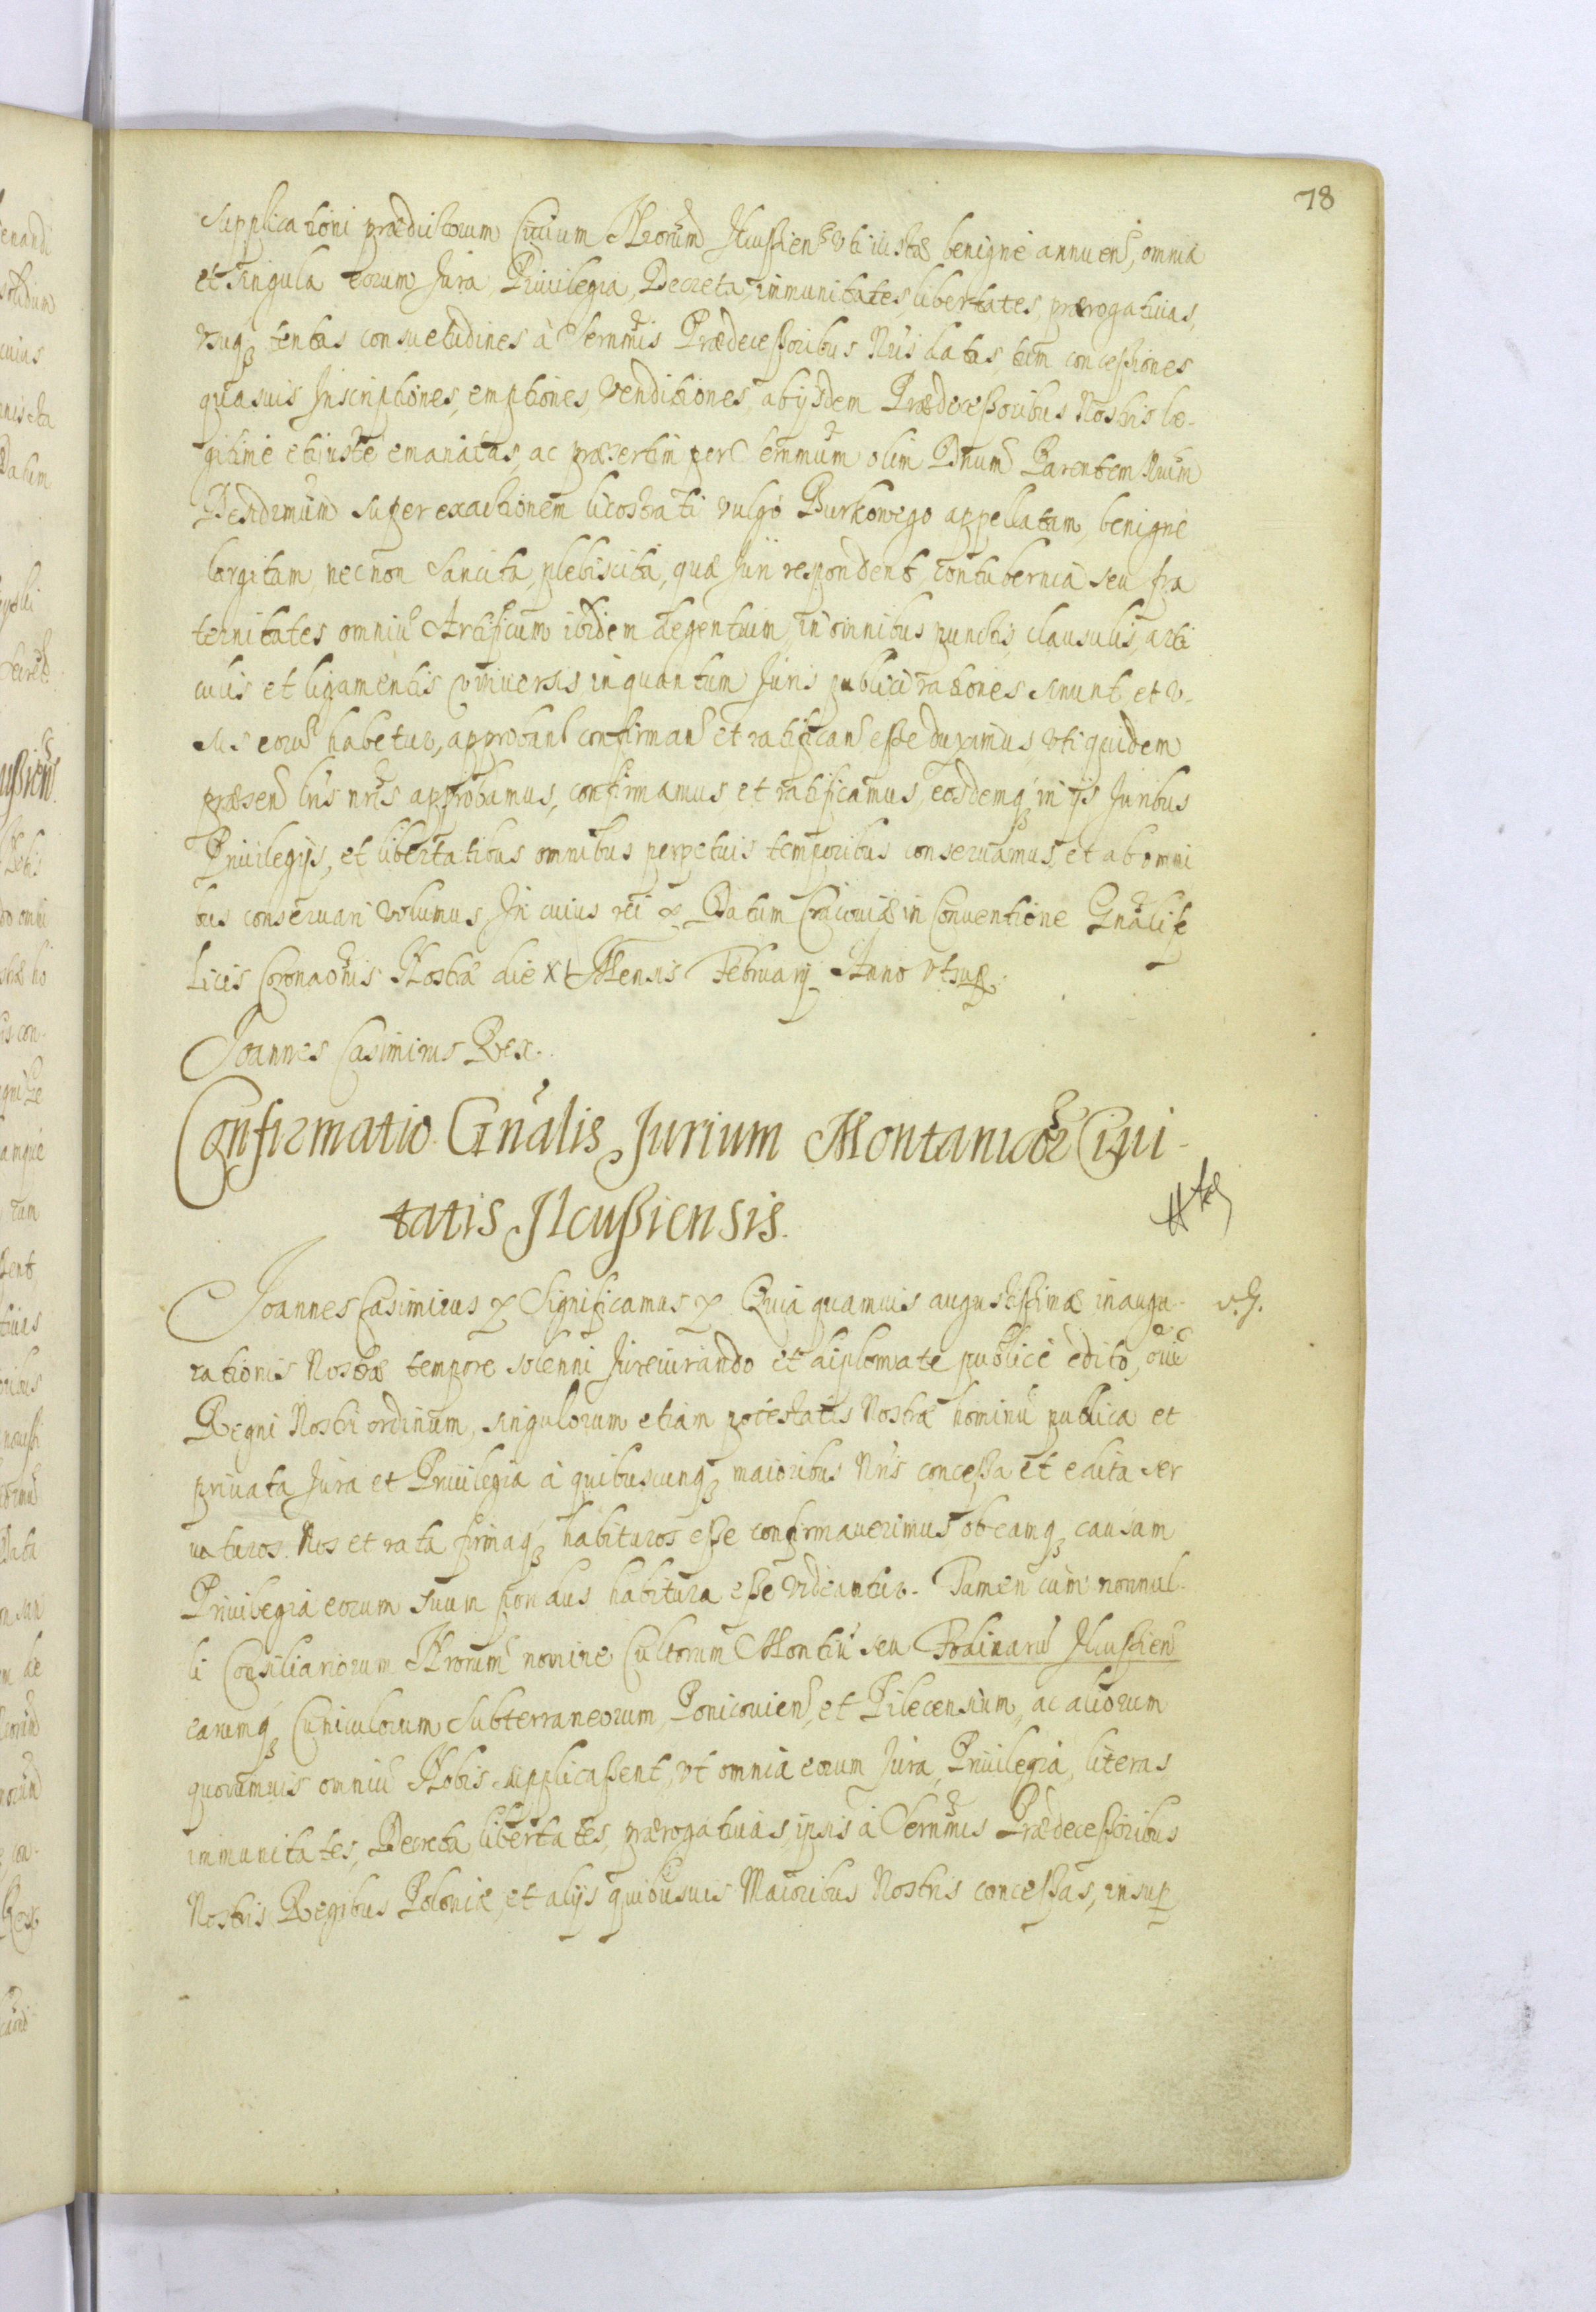 78
Supplicationi prædictorum Ciuium Nrorum Ilcussien Vti iustæ benignè annuen, omnia
et singula eorum Jura, Priuilegia, Decreta, immunitates, libertates, prærogatiuas,
vsuq tentas consuetudines à Sernmis Prædecessoribus Nris datas, tum concessiones
quasuis Inscriptiones, emptiones, Venditiones, ab ijsdem Prædecessoribus Nostris læ-
gitimè et iustè emanatas, ac præsertim per Sernmum olim Dnum Parentem Nrum
Desidmum super exactionem licostrati vulgò Burkowego appellatam, benignè
largitam, necnon Sancita, plebiscita, quæ Juri respondent, contubernia seu fra
ternitates omniu Artificum ibidem degentium, in omnibus punctis, clausulis, arti
culis et ligamentis Vniuersis, inquantum Juris publici rationes sinunt et v-
sus eoru habetur, approban confirman et ratifican esse duximus, vti quidem
præsen lris nris approbamus, confirmamus et ratificamus, eosdemq in ijs Juribus
Priuilegijs, et libertatibus omnibus perpetuis temporibus conseruamus, et ab omni
bus conseruari Volumus, In cuius rei & Datum Cracouiæ in Conuentione Gnali fe
licis Coronaonis Nostræ die XI Mensis Februarij Anno vtsup.
Joannes Casimirus Rex.
Confirmatio Gnalis Jurium Montanicor Ciui-
tatis Ilcussiensis.
Joannes Casimirus & Significamus & Quia quamuis augustissimæ inaugu-
rationis Nostræ tempore solenni Jureiurando et diplomate publicè edito, oiu
Regni Nostri ordinum, singulorum etiam potestatis Nostræ hominu publica et
priuata Jura et Priuilegia à quibuscunq maioribus Nris concessa et edita ser
uaturos Nos et rata firmaq habituros esse confirmauerimus ob eamq causam
Priuilegia eorum suum pondus habitura esse videantur. Tamen cùm nonnul-
li Consiliariorum Nrorum nomine Cultorum Montiu seu Fodinaru Ilcussien
earumq Cuniculorum Subterraneorum, Ponicouien, et Pilecensium, ac aliorum
quorumuis omniu Nobis supplicassent, vt omnia eorum Jura, Priuilegia, literas
immunitates, Decreta, libertates, prærogatiuas, ipsis à Sernmis Prædecessoribus
Nostris Regibus Poloniæ, et alijs quibusuis Maioribus Nostris concessas, insup